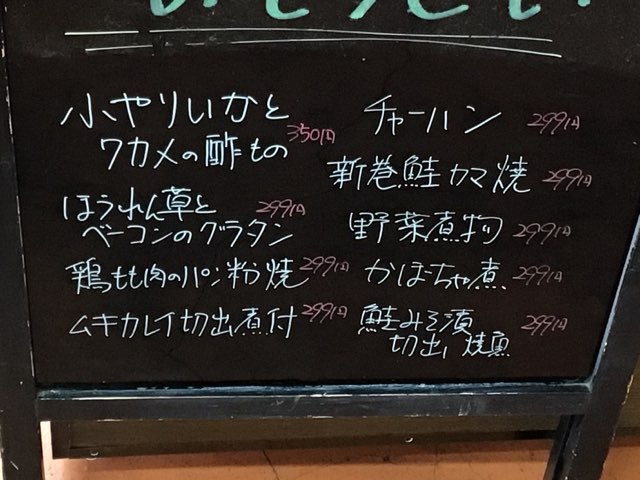 小やりいかと
ワカメの酢もの 350円
ほうれん草と
ベーコンのグラタン 299円
鶏もも肉のパン粉焼 299円
ムキカレイ切出煮付 299円
チャーハン 299円
新巻鮭カマ焼 299円
野菜煮物 299円
かぼちゃ煮 299円
鮭みそ漬
切出し焼魚 299円